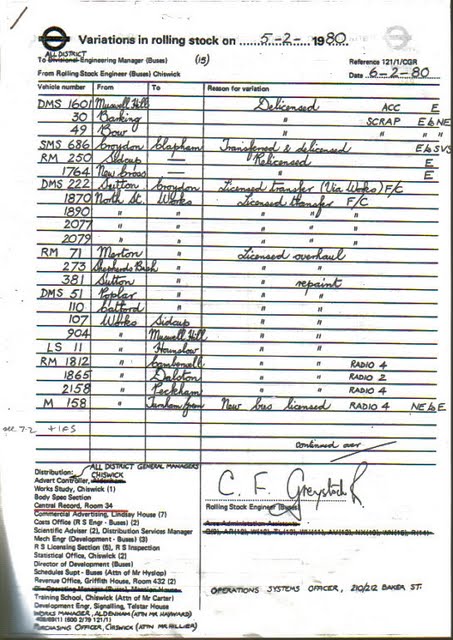 Variations in rolling stock on 5-2- 1980
ALL DISTRICT
To Divisional Engineering Manager (Buses) (15)
Reference 121/1/CGR
From Rolling Stock Engineer (Buses) Chiswick
Date 6-2-80
Vehicle number From To Reason for variation
DMS 1601 Muswell Hill Delicensed ACC E
30 Barking " SCRAP E & NE
49 Bow " " " "
SMS 686 Croydon Clapham Transferred & delicensed E & SVS
RM 250 Sidcup — Relicensed E
1764 New Cross — " E
DMS 222 Sutton Croydon Licensed transfer (Via Works) F/C
1870 North St. Works Licensed transfer F/C
1890 " " " " "
2077 " " " "
2079 " " " "
RM 71 Merton " Licensed overhaul
273 Shepherds Bush " " "
381 Sutton " " repaint
DMS 51 Poplar " " "
110 Catford " " "
107 Works Sidcup " "
904 " Muswell Hill " "
LS 11 " Hounslow " "
RM 1812 " Camberwell " " RADIO 4
1865 " Dalston " " RADIO 2
2158 " Peckham " " RADIO 4
M 158 " Turnham Green New bus licensed RADIO 4 NE & E
7-2 +
continued over
Distribution: ALL DISTRICT GENERAL MANAGERS
CHISWICK
Advert Controller, Aldenham
Works Study, Chiswick (1)
Body Spec Section
Central Record, Room 34
C. F. Greystock
Rolling Stock Engineer (Buses)
Commercial Advertising, Lindsay House (7)
Area Administration Assistants
Costs Office (R S Engr - Buses) (2)
Scientific Adviser (2), Distribution Services Manager
Mech Engr (Development - Buses) (3)
RS Licensing Section (5), R S Inspection
Statistical Office, Chiswick (2)
Director of Development (Buses)
Schedules Supt - Buses (Attn of Mr Hyslop)
Revenue Office, Griffith House, Room 432 (2)
OPERATIONS SYSTEMS OFFICER, 210/212 BAKER ST.
Training School, Chiswick (Attn of Mr Carter)
Development Engr, Signalling, Telstar House
WORKS MANAGER, ALDENHAM (ATTN MR HAYWARD)
PURCHASING OFFICER, CHISWICK (ATTN MR HILLIER)